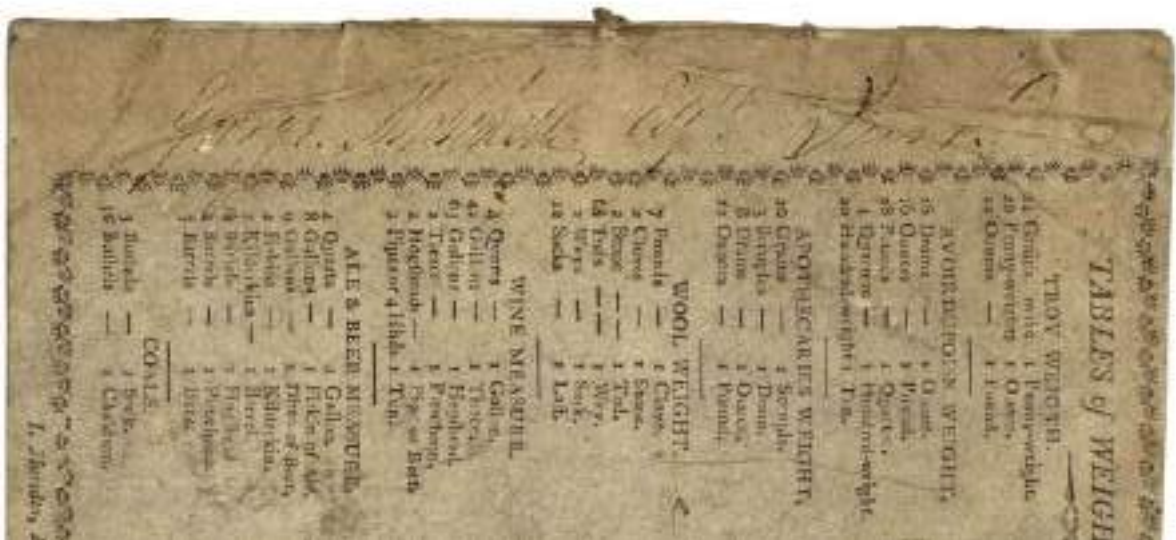 TABLES of WEIGH
TROY WEIGHT.
24 Grains make 1 Pennyweight
20 Pennyweights 1 Ounce,
12 Ounces — 1 Pound.
AVOIRDUPOIS WEIGHT,
16 Drams — 1 Ounce,
16 Ounces — 1 Pound,
28 Pounds — 1 Quarter,
4 Quarters — 1 Hundred-weight,
20 Hundred-weight 1 Ton.
APOTHECARIES WEIGHT,
20 Grains — 1 Scruple,
3 Scruples — 1 Dram,
8 Drams — 1 Ounce,
12 Ounces — 1 Pound.
WOOL WEIGHT
7 Pounds — 1 Clove,
2 Cloves — 1 Stone,
2 Stone — 1 Tod,
Tods — 1 Wey,
2 Weys — 1 Sack,
12 Sacks — 1 Last.
WINE MEASURE.
4 Quarts — 1 Gallon,
42 Gallons — 1 Tierce,
63 Gallons — 1 Hogshead,
2 Tierce — 1 Puncheon,
2 Hogsheads — 1 Pipe or Butt
2 Pipes or 4 Hhds. 1 Tun.
ALE & BEER MEASURE
4 Quarts — 1 Gallon,
8 Gallons — 1 Firkin of Ale,
9 Gallons — 1 Ditto of Beer,
2 Firkins — 1 Kilderkin,
2 Kilderkins — 1 Barrel
Barrels — 1 Hogshead
2 Barrels — 1 Puncheon
3 Barrels — 1 Butt.
COALS.
3 Bushels — 1 Sack,
36 Bushels — 1 Chaldron.